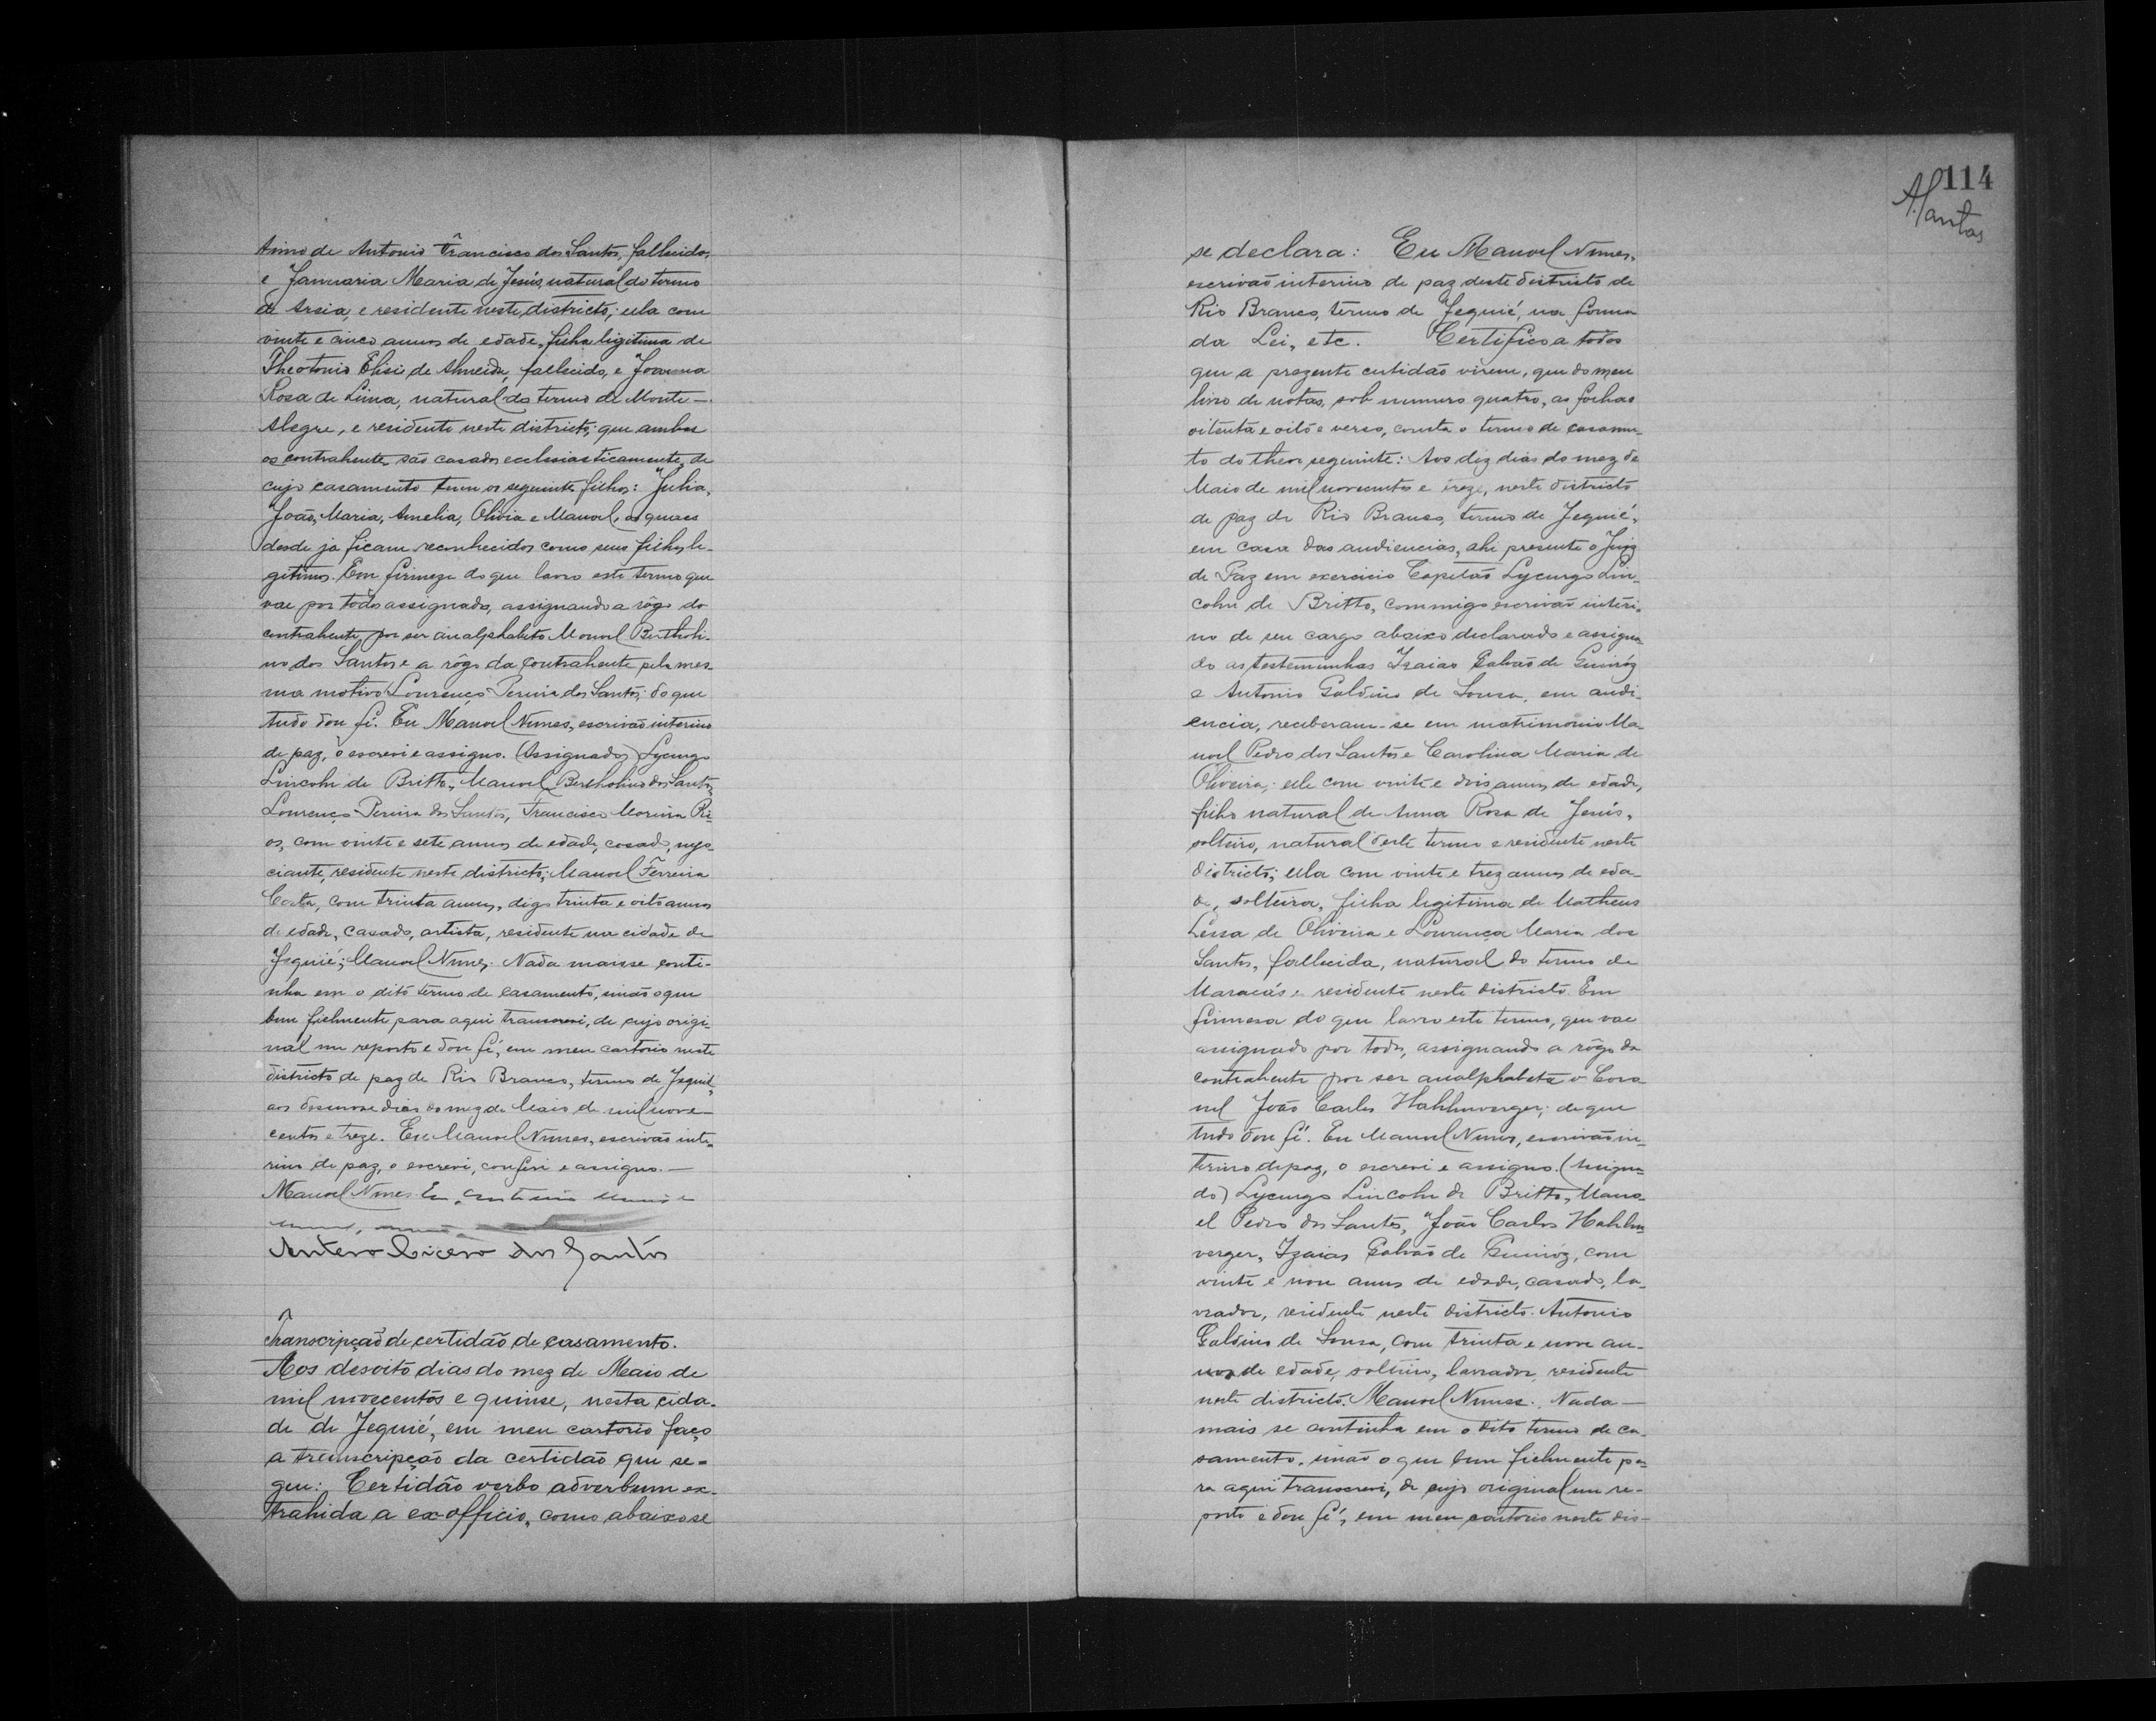 timo de Antonio Francisco dos Santos, fallecido,
e Januaria Maria de Jesús, natural do termo
de Areia, e residente neste districto; ella com
vinte e cinco annos de edade, filha legitima de
Theotonio Elisio de Almeida, fallecido, e Joanna
Rosa de Lima, natural do termo de Monte-
Alegre, e residente neste districto; que ambos
os contrahentes são casados ecclesiasticamente, de
cujo casamento tem os seguintes filhos: Julia,
João, Maria, Amelia, Olivia e Manoel, os quaes
desde já ficam reconhecidos como seus filhos le-
gitimos. Em firmeza do que lavro este termo que
vae por todos assignado, assignando a rôgo do
contrahente por ser analphabeto Manoel Bertholi-
no dos Santos e a rôgo da contrahente pelo mes-
mo motivo Lourenço Pereira dos Santos; do que
tudo dou fé. Eu Manoel Nunes, escrivão interino
de paz, o escrevi e assigno. (Assignados) Lycurgo
Lincoln de Britto, Manoel Bertholino dos Santos,
Lourenço Pereira dos Santos, Francisco Moreira Ri-
os, com vinte e sete annos de edade, casado, nego-
ciante, residente neste districto; Manoel Ferreira
Costa, com trinta annos, digo trinta e oito annos
de edade, casado, artista, residente na cidade de
Jequié; Manoel Nunes. Nada mais se conti-
nha em o dito termo de casamento, sinão o que
bem fielmente para aqui transcrevi, de cujo origi-
nal me reporto e dou fé, em meu cartorio neste
districto de paz de Rio Branco, termo de Jequié,
aos desenove dias do mez de Maio de mil nove-
centos e treze. Eu Manoel Nunes, escrivão inte-
rino de paz, o escrevi, conferi e assigno.—
Manoel Nunes. Eu,
Antero Cicero dos Santos
Transcripção de certidão de casamento.
Aos desoito dias do mez de Maio de
mil novecentos e quinse, nesta cida-
de de Jequié, em meu cartorio faço
a transcripção da certidão que se-
gue: Certidão verbo adverbum ex-
trahida a ex-officio, como abaixo se
114
se declara: Eu Manoel Nunes,
escrivão interino de paz deste districto de
Rio Branco, termo de Jequié, na forma
da Lei, etc. Certifico a todos
que a prezente certidão virem, que do meu
livro de notas, sob numero quatro, as folhas
oitenta e oito e verso, consta o termo de casamen-
to do theor seguinte: Aos dez dias do mez de
Maio de mil novecentos e treze, neste districto
de paz de Rio Branco, termo de Jequié,
em casa das audiencias, ahi presente o Juiz
de Paz em exercicio Capitão Lycurgo Lin-
coln de Britto, commigo escrivão interi-
no de seu cargo abaixo declarado e assigna-
do as testemunhas Izaias Galvão de Queiróz
e Antonio Galdino de Sousa, em audi-
encia, receberam-se em matrimonio Ma-
noel Pedro dos Santos e Carolina Maria de
Oliveira; elle com vinte e dois annos de edade,
filho natural de Anna Rosa de Jesús,
solteiro, natural deste termo e residente neste
districto; ella com vinte e trez annos de eda-
de, solteira, filha legitima de Matheus
Lessa de Oliveira e Lourença Maria dos
Santos, fallecida, natural do termo de
Maracás e residente neste districto. Em
firmesa do que lavro este termo, que vae
assignado por todos, assignando a rôgo da
contrahente por ser analphabeta o Coro-
nel João Carlos Hohlenwerger; de que
tudo dou fé. Eu Manoel Nunes, escrivão in-
terino de paz, o escrevi e assigno. (Assigna-
do) Lycurgo Lincoln de Britto, Mano-
el Pedro dos Santos, João Carlos Hohlen-
werger, Izaias Galvão de Queiróz, com
vinte e nove annos de edade, casado, la-
vrador, residente neste districto. Antonio
Galdino de Sousa, com trinta e nove an-
nos de edade, solteiro, lavrador, residente
neste districto. Manoel Nunes. Nada—
mais se continha em o dito termo de ca-
samento, sinão o que bem fielmente pa-
ra aqui transcrevi, de cujo original me re-
porto e dou fé, em meu cartorio neste dis-